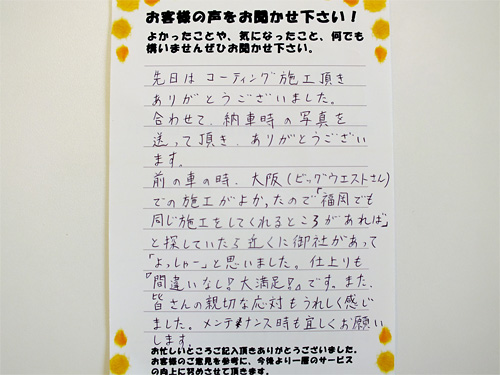 お客様の声をお聞かせ下さい！
よかったことや、気になったこと、何でも
構いませんぜひお聞かせ下さい。
先日は コーティング施工頂き
ありがとうございました。
合わせて、納車時の写真を
送って頂き、ありがとうござい
ます。
前の車の時、大阪(ビッグウエストさん)
での施工がよかったので「福岡でも
同じ施工をしてくれるところがあれば」
と探していたら近くに御社があって
「よっしゃー」と思いました。仕上りも
「間違いなし!大満足!」です。また、
皆さんの親切な応対もうれしく感じ
ました。メンテナンス時も宜しくお願い
します。
お忙しいところご記入頂きありがとうございました。
お客様のご意見を参考に、今後より一層のサービス
の向上に努めさせて頂きます。